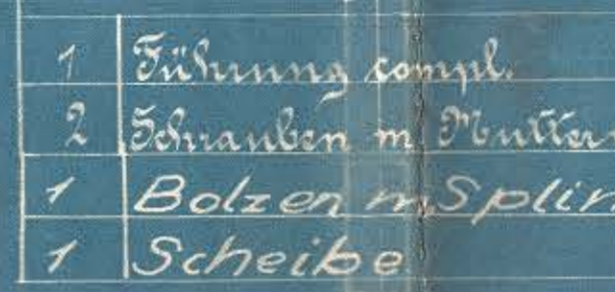 1 Führung compl.
2 Schrauben m Mutter
1 Bolzen m Splin
1 Scheibe